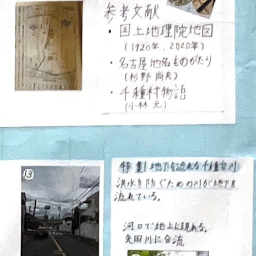 参考文献
・国土地理院地図
(1920年、2020年)
・名古屋地名ものがたり
(杉野尚夫)
・千種村物語
(小林元)
⑬
特集!地下を流れる千種台川
洪水を防ぐための川が地下を
流れている。
河口で地上に現れる。
矢田川に合流